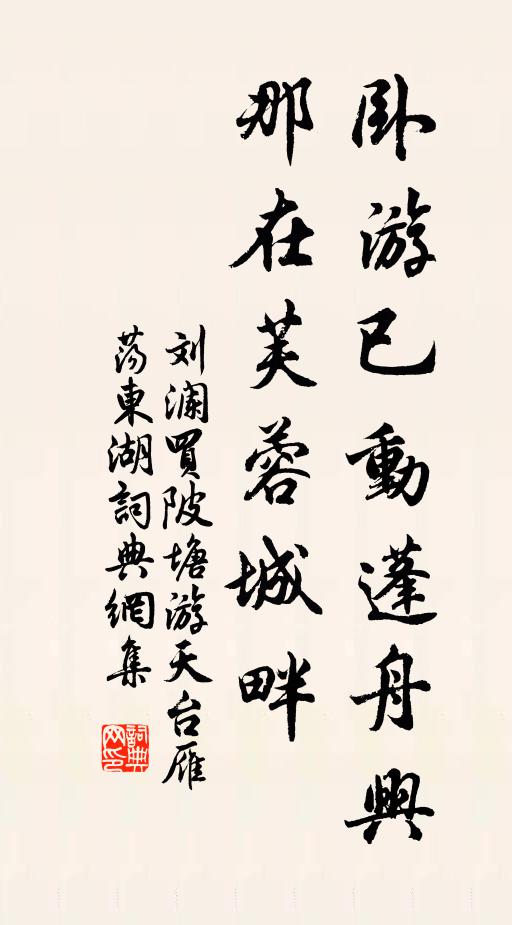 卧游已動蓬舟興
那在芙蓉城畔
刘瀾買陂塘游天台雁
蕩東湖詞典網集
詞典
网印